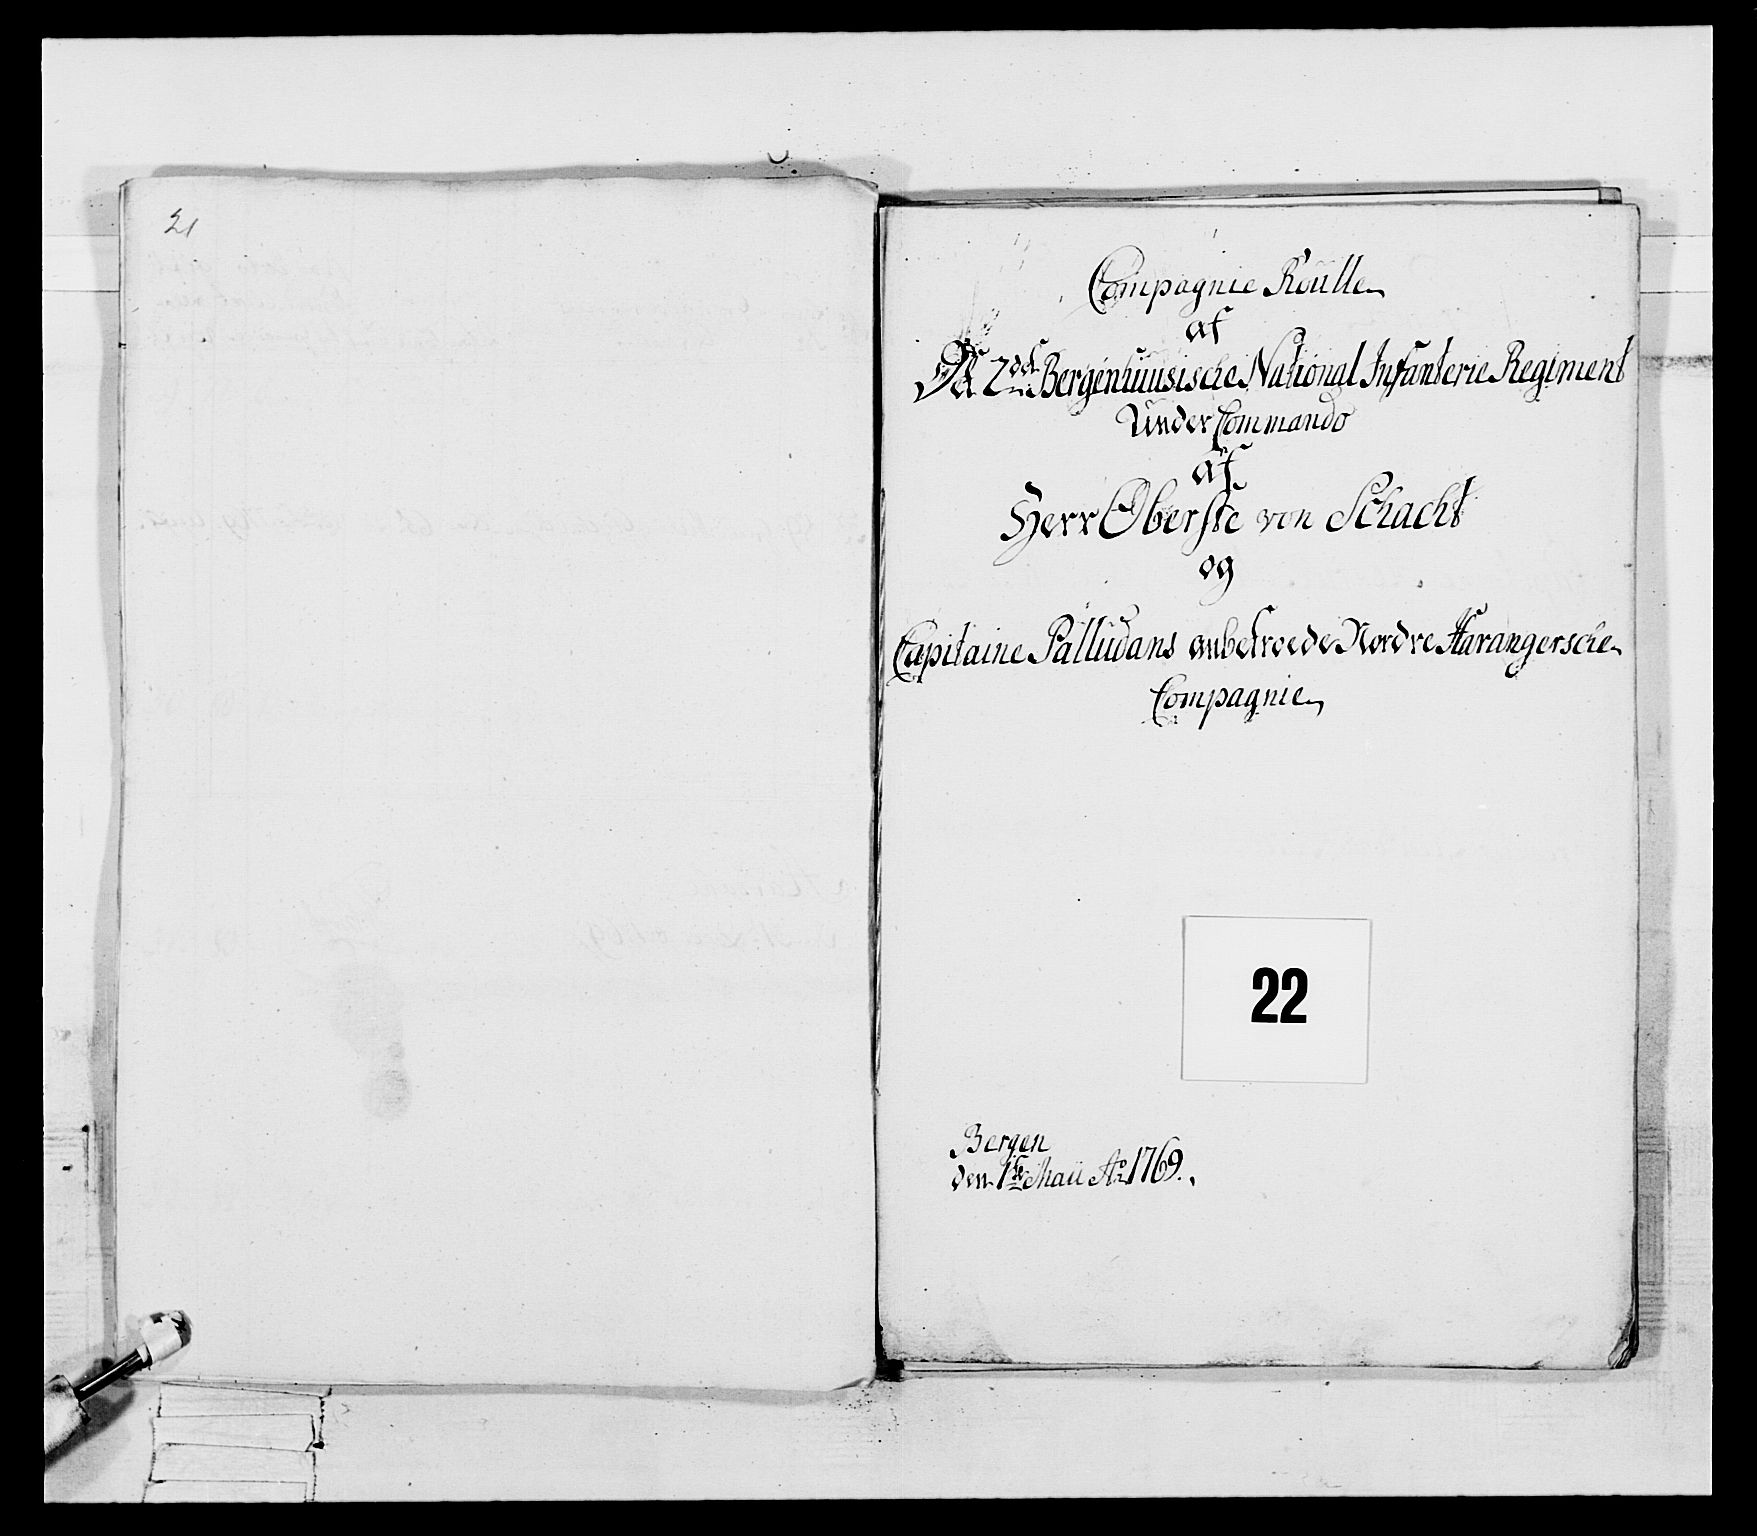 21
Compagnie Roulle
af
Dt 2det Bergenhuusische National Infanterie Regiment
Under Commando
af
Herr Oberste von Schacht
og
Capitaine Palludans anbetroede Nordre Harangersche
Compagnie
22
Bergen
den 1ste Maii Ao 1769.